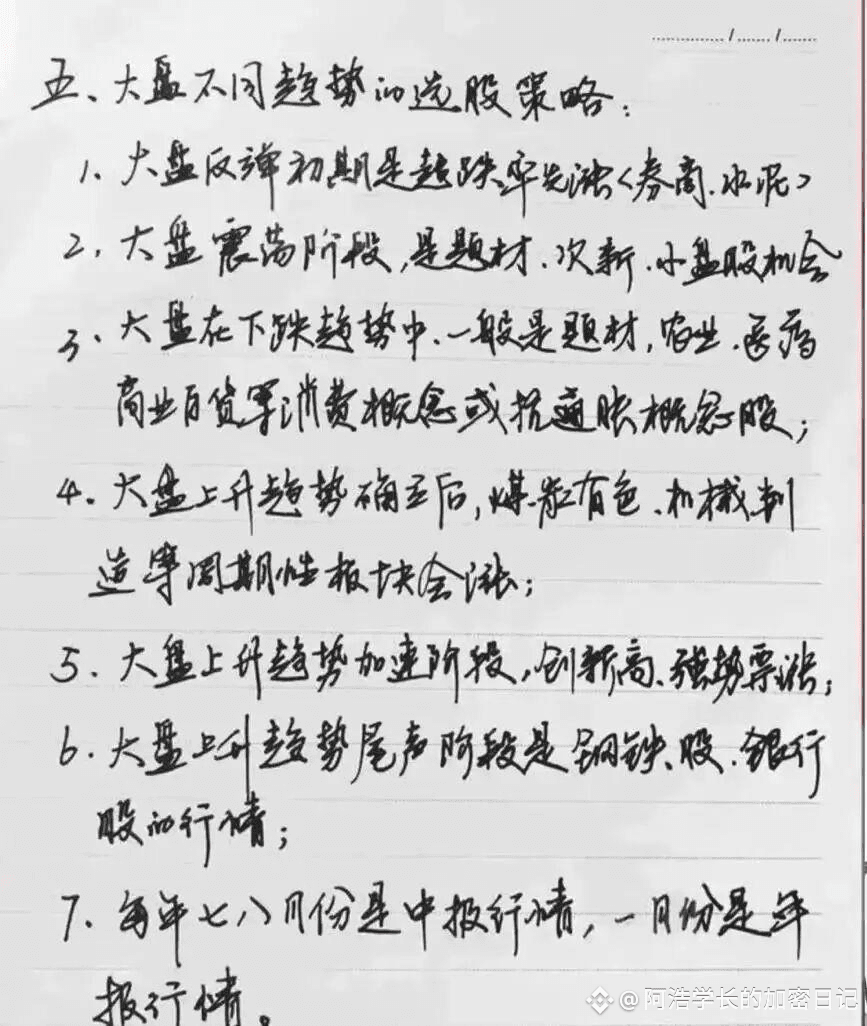 ....../....../......
五、大盘不同趋势的选股策略:
1、大盘反弹初期是超跌率先涨<券商、水泥>
2、大盘震荡阶段,是题材、次新、小盘股机会
3、大盘在下跌趋势中、一般是题材,农业、医药
商业百货军消费概念或抗通胀概念股;
4、大盘上升趋势确立后,煤炭有色、机械制
造等周期性板块会涨;
5、大盘上升趋势加速阶段,创新高、强势票涨;
6、大盘上升趋势尾声阶段是钢铁、股、银行
股的行情;
7、每年七八月份是中报行情,一月份是年
报行情。
@阿浩学长的加密日记